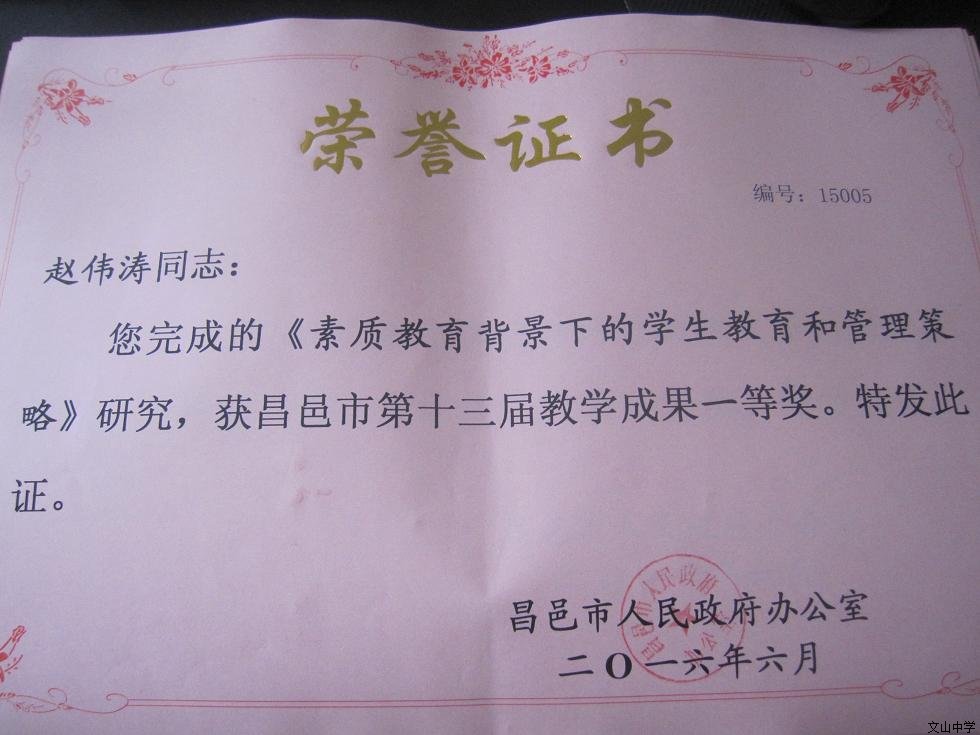 荣誉证书
编号：15005
赵伟涛同志：
您完成的《素质教育背景下的学生教育和管理策
略》研究，获昌邑市第十三届教学成果一等奖。特发此
证。
昌邑市人民政府办公室
二〇一六年六月
昌邑市人民政府办公室
文山中学